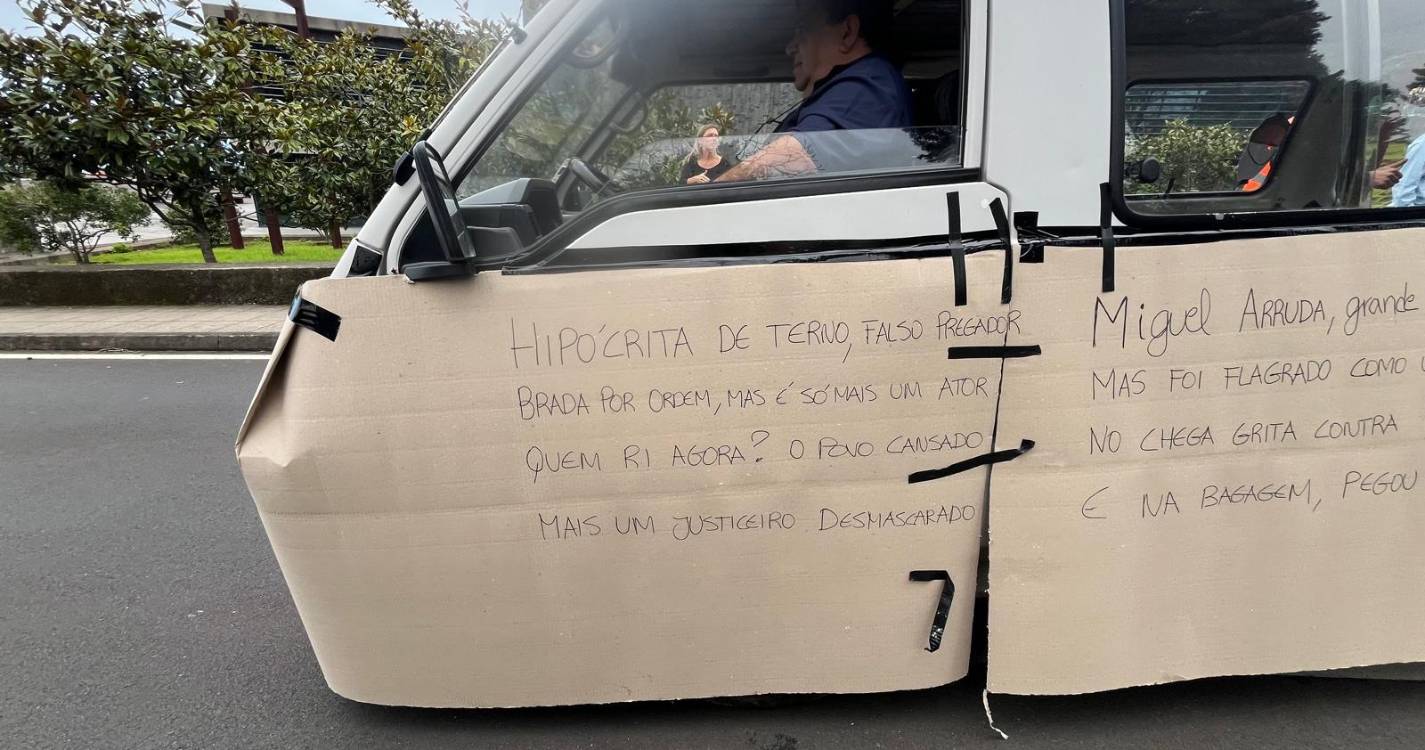 HIPÓCRITA DE TERNO, FALSO PREGADOR
BRADA POR ORDEM, MAS É SÓ MAIS UM ATOR
QUEM RI AGORA? O POVO CANSADO
MAIS UM JUSTICEIRO DESMASCARADO
Miguel ARRUDA, grande
MAS FOI FLAGRADO COMO
NO CHEGA GRITA CONTRA
E NA BAGAGEM, PEGOU